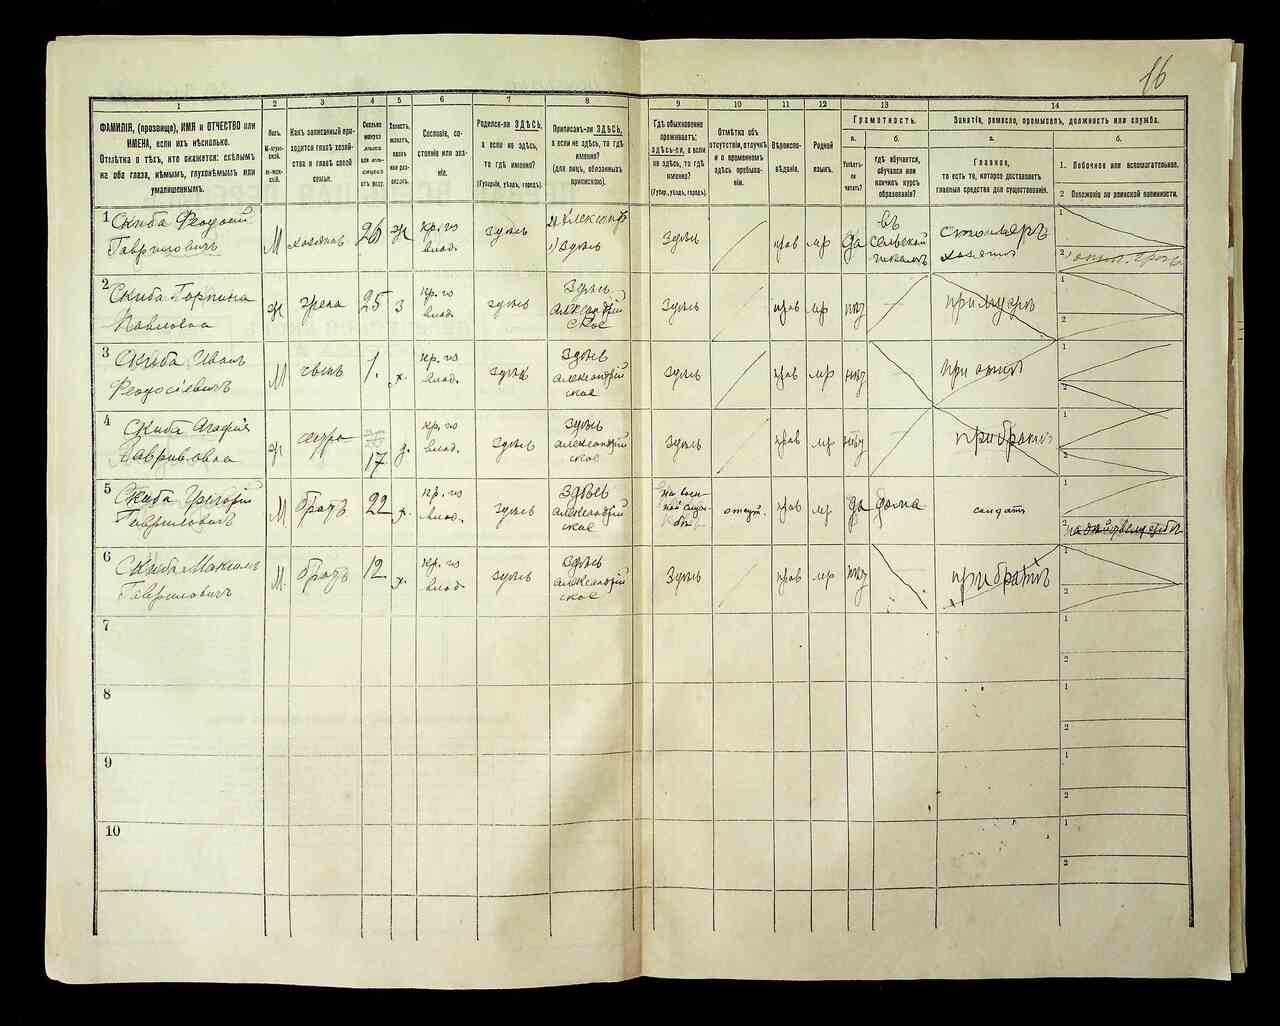 16
1
2
3
4
5
6
7
8
9
10
11
12
13
14
ФАМИЛІЯ, (прозвище), ИМЯ и ОТЧЕСТВО или
ИМЕНА, если ихъ нѣсколько.
Отмѣтка о тѣхъ, кто окажется: слѣпымъ
на оба глаза, нѣмымъ, глухонѣмымъ или
умалишеннымъ.
Полъ.
Какъ записанный при-
ходится главѣ хозяй-
ства и главѣ своей
семьи.
Сколько
Холостъ,
женатъ,
вдовъ
Сословіе, со-
стояніе или зва-
ніе.
Родился-ли ЗДѢСЬ,
а если не здѣсь,
то гдѣ именно?
(Губернія, уѣздъ, городъ).
Приписанъ-ли ЗДѢСЬ,
а если не здѣсь, то гдѣ
именно?
(для лицъ, обязанныхъ
припискою).
Гдѣ обыкновенно
проживаетъ:
здѣсь-ли, а если
не здѣсь, то гдѣ
именно?
(Губер., уѣздъ, городъ).
Отмѣтка объ
отсутствіи, отлучкѣ
и о временномъ
здѣсь пребыва-
ніи.
Вѣроиспо-
вѣданіе.
Родной
языкъ.
Грамотность.
а.
Умѣетъ-
ли
читать?
б.
гдѣ обучается,
обучался или
кончилъ курсъ
образованія?
Занятія, ремесло, промыселъ, должность или служба.
а.
Главное,
то есть то, которое доставляетъ
главныя средства для существованія.
б.
1. Побочное или вспомогательное.
2 Положеніе по воинской повинности.
1
Скиба Феодосій
Гавриловичъ
М
хозяинъ
26
ж
кр. го
влад.
здѣсь
здѣсь
Здѣсь
прав
мр
да
въ
сельской
столяръ
хозяинъ
1
2
2
Скиба Горпина
Павловна
ж
жена
25
з
кр. го
влад.
здѣсь
Здѣсь
александрій
ское
Здѣсь
прав
мр
нѣт
при мужѣ
1
2
3
Скиба Иванъ
Феодосіевичъ
М
сынъ
1.
х.
кр. го
влад.
здѣсь
Здѣсь
александрій
ское
здѣсь
прав
мр
нѣт
при отцѣ
1
2
4
Скиба Агафія
Гавриловна
ж
сестра
17
д.
кр. го
влад.
здѣсь
здѣсь
александрій
ское
здѣсь
прав
мр
нѣт
при братѣ
1
2
5
Скиба Григорій
Гавриловичъ
М
братъ
22
х.
кр. го
влад.
здѣсь
Здѣсь
александрій
ское
на воен-
ной служ-
бѣ
отсут.
прав
мр
да
дома
солдатъ
2
6
Скиба Максимъ
Гавриловичъ
М.
братъ
12
х.
кр. го
влад.
здѣсь
здѣсь
александрій
ское
Здѣсь
прав
мр
нѣт
при братѣ
1
2
7
1
2
8
1
2
9
1
2
10
1
2